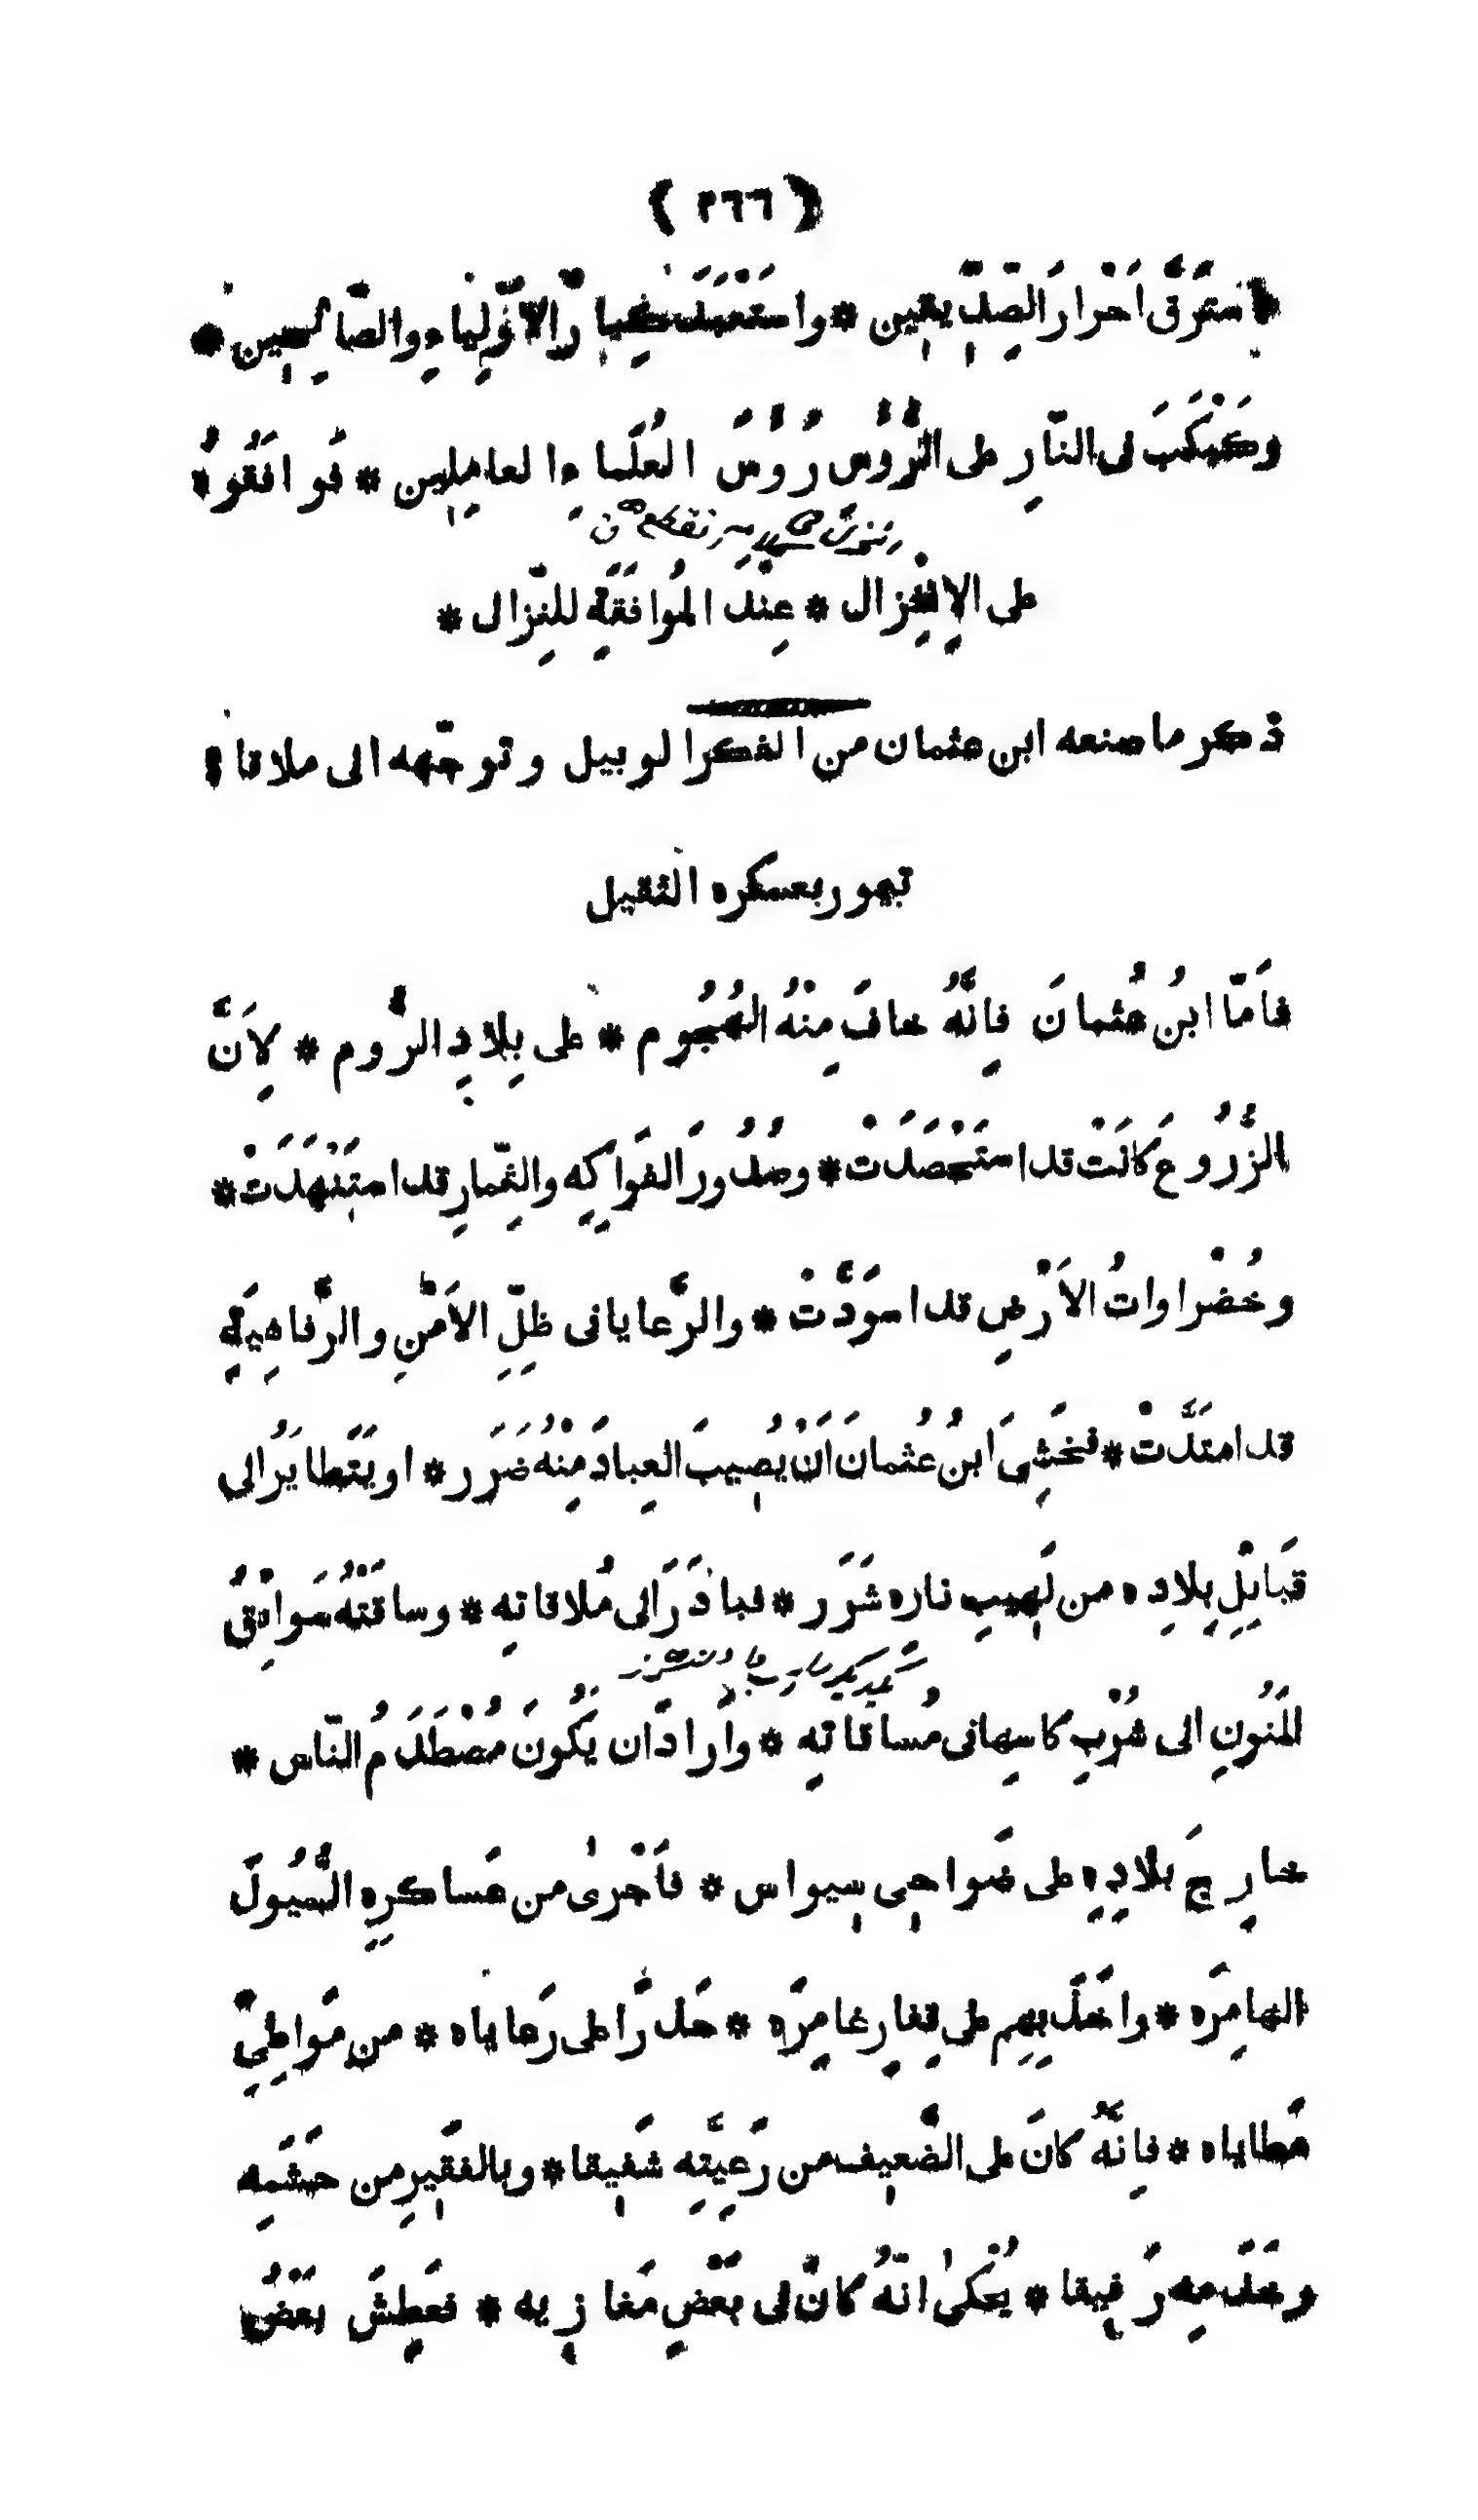 ( ٢٦٦ )
استَرَقَّ اَحْرارَ الصِّدِّيقين * واستَعْبَدَ خِيارَ الاَوْلِياءِ والصّالِحين *
وكَبْكَبَ فى النّارِ على الرُّؤُسِ رُؤُسَ العُلَماءِ العامِلين * فَوافَقُوهُ
على الاِنْخِزال * عِنْدَ المُوافَقَةِ للنِّزال *
ذكر ما صنعه ابن عثمان من الفكر الوبيل وتوجّهه الى ملاقاة
تيمور بعسكره الثقيل
فاَمّا ابنُ عُثمانَ فاِنَّهُ خافَ مِنْهُ الهُجُوم * على بِلادِ الرُّوم * لِاَنَّ
الزُّرُوعَ كانَتْ قد استَحْصَدَتْ * وصُدُورَ الفَواكِه والثِّمارِ قد استَنْهَدَتْ *
وخُضْراواتُ الاَرْضِ قد اسوَدَّتْ * والرَّعايا فى ظِلِّ الاَمْنِ والرَّفاهِيَةِ
قد امتَدَّتْ * فخَشِىَ ابنُ عُثمانَ اَنْ يُصِيبَ العِبادَ مِنْهُ ضَرَر * او يَتَطايَرَ الى
قَبائِلِ بِلادِه من لَهِيبِ نارِه شَرَر * فبادَرَ الى مُلاقاتِه * وساقَتْهُ سَوائِقُ
المَنُونِ الى شُرْبِ كاسِها فى مُساقاتِه * واَرادَ ان يَكُونَ مُصْطَدَمُ النّاس *
خارِجَ بلادِه على ضَواحِى سِيواس * فاَجْرىٰ من عَساكِرِه السُّيُولَ
الهامِرَه * واَخَذَ بِهِم على قِفارٍ غامِرَه * حَذَرًا على رَعاياه * من مَواطِئِ
مَطاياه * فاِنَّهُ كانَ على الضَّعِيفِ من رَعِيَّتِه شَفِيقا * وبالفَقِيرِ من حَشَمِه
وخَدَمِه رَفِيقا * يُحْكىٰ انّهُ كانَ فى بَعْضِ مَغازِيه * فعَطِشَ بَعْضُ